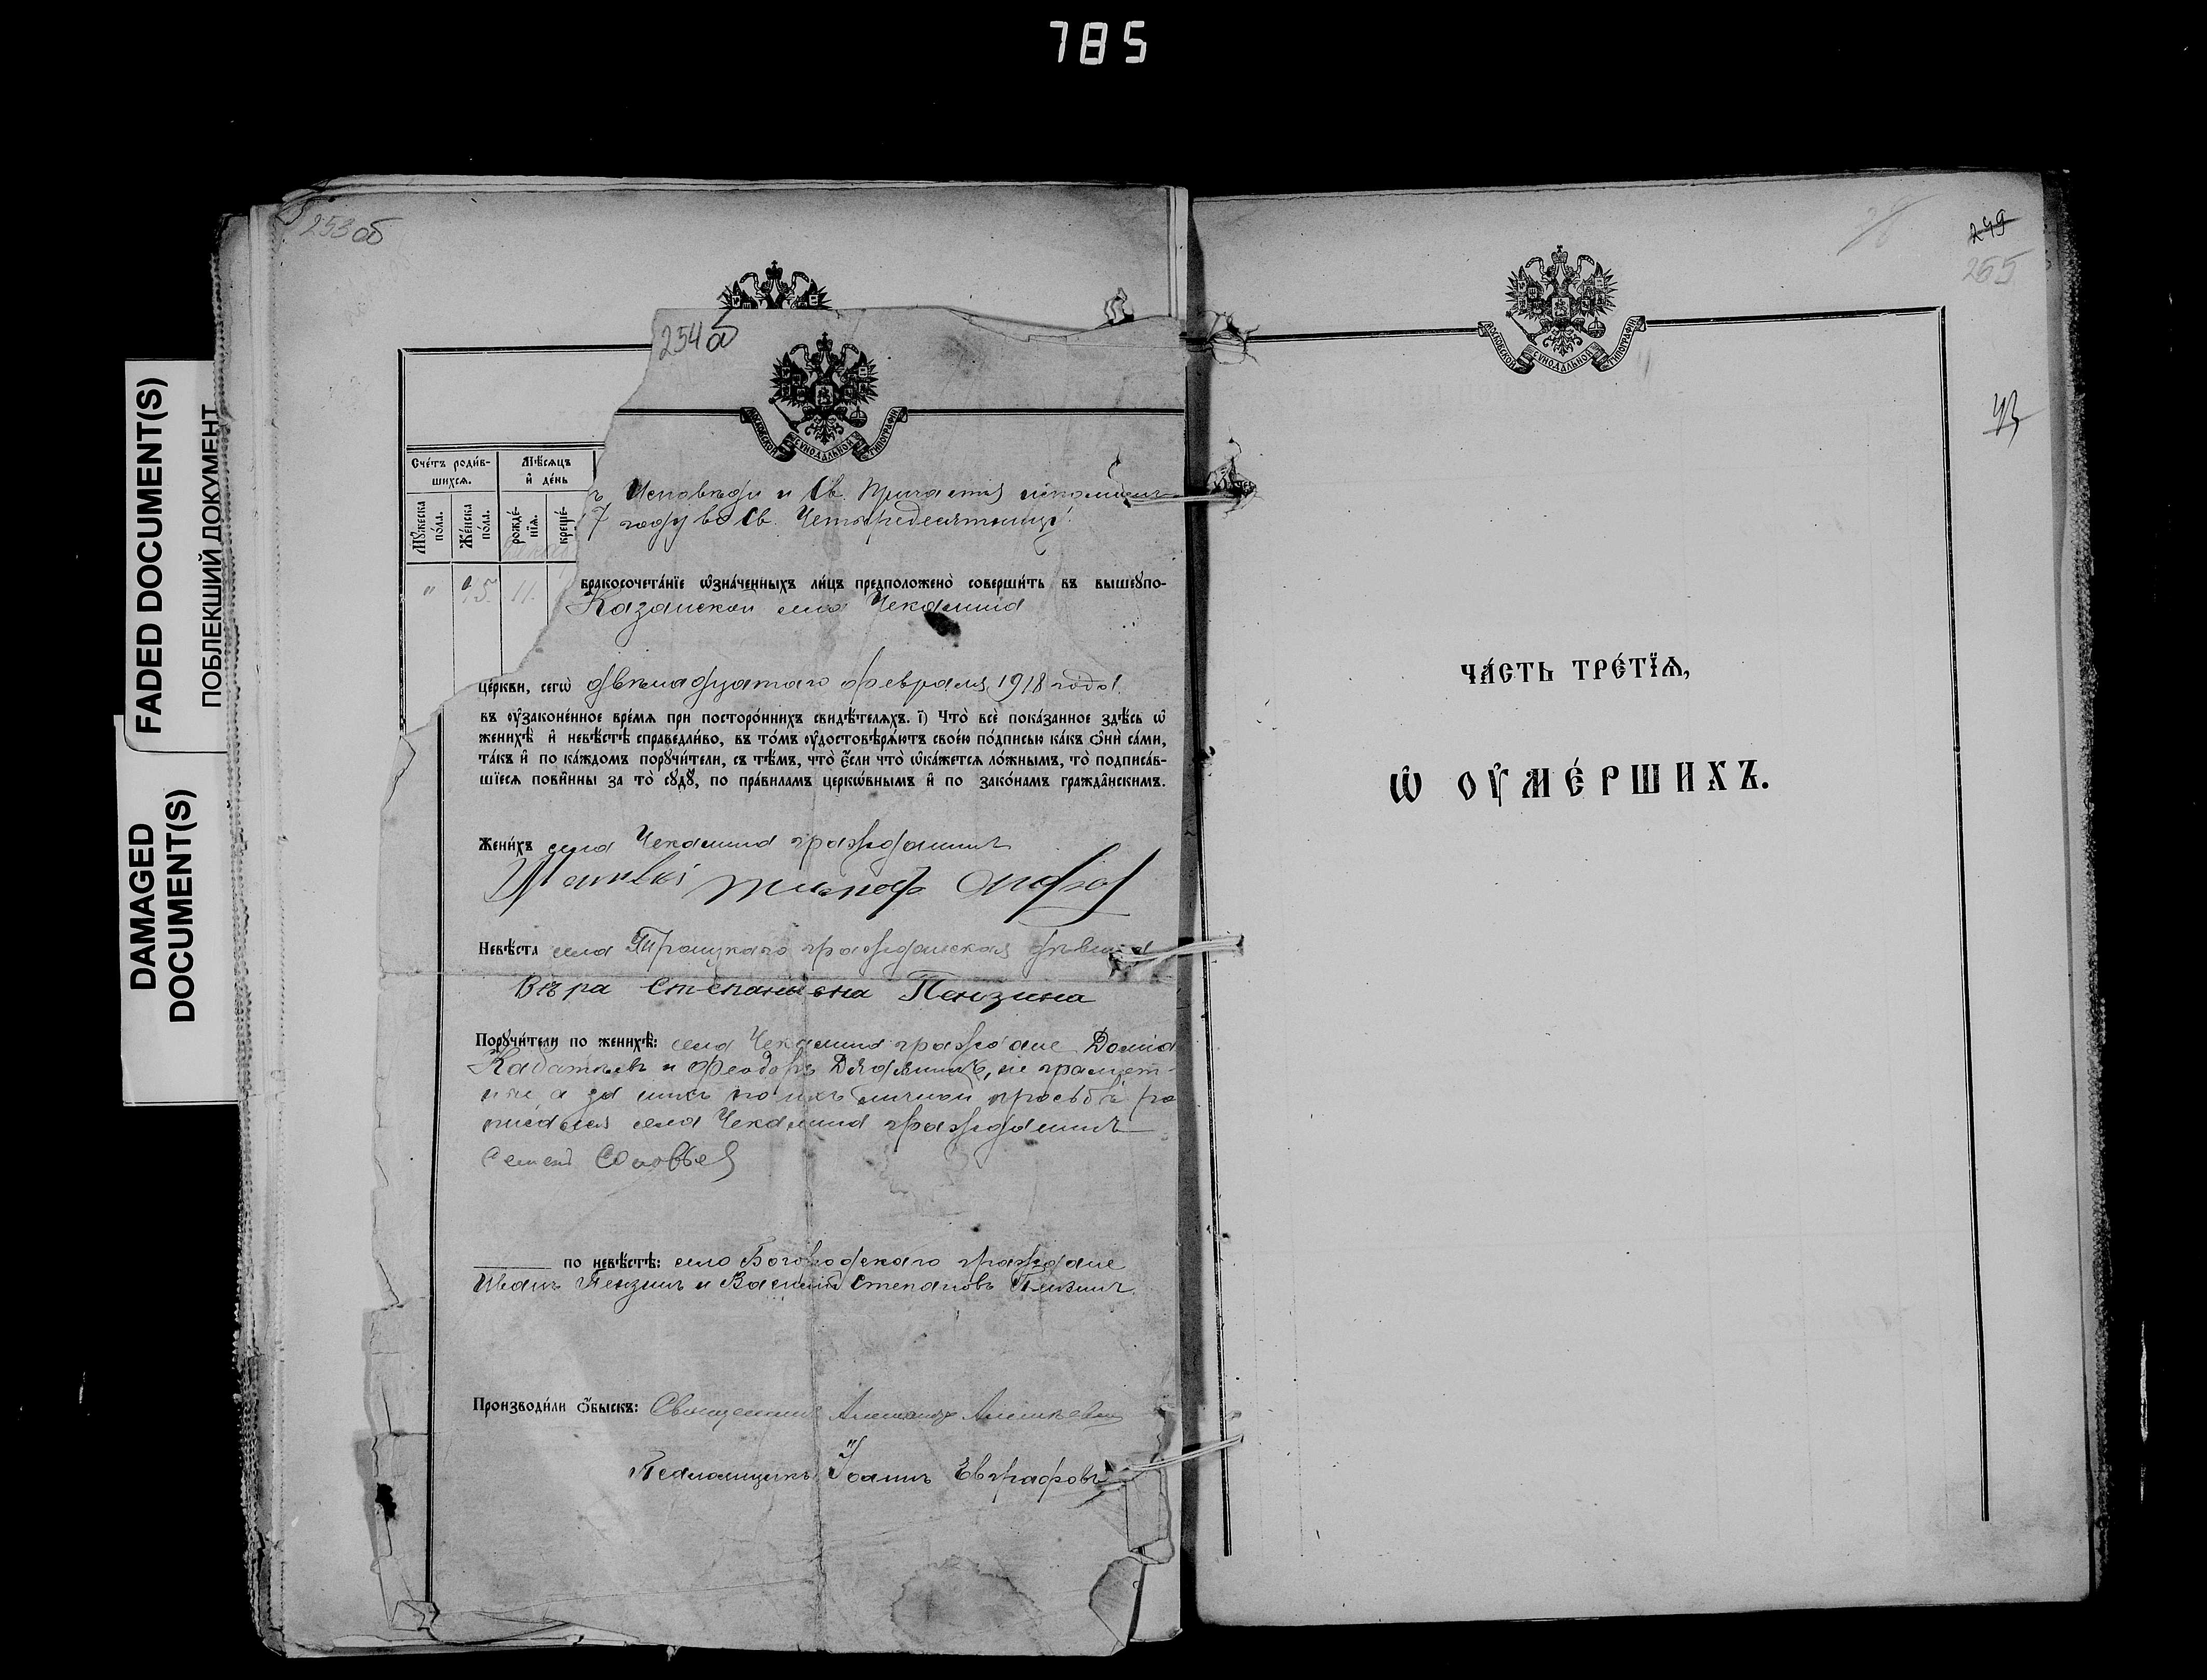 785
FADED DOCUMENT(S)
ПОБЛЕКШИЙ ДОКУМЕНТ
DAMAGED
DOCUMENT(S)
253 об
254 об
МОСКОВСКОЙ СѴНОДАЛЬНОЙ ТИПОГРАФІИ
Сче́тъ роди́в-
шихсѧ.
Мѣ́сѧцъ
и҆ де́нь
Мꙋ́жеска
по́ла.
Же́нска
по́ла.
рожде́-
нїѧ.
креще́-
" 15. 11.
ъ Исповѣди и Св. Причастія
7 году во Св. Четыредесятницу.
бракосочета́нїе ѡ҆зна́ченныхъ ли́цъ предположено̀ соверши́ть въ вышеꙋпо-
Казанской села Чекалина
це́ркви, сегѡ̀ двѣнадцатаго февраля 1918 года.
въ ᲂу҆зако́ненное вре́мѧ при посторо́ннихъ свидѣ́телѧхъ. і҃) Что̀ всѐ пока́занное здѣ́сь ѡ҆
женихѣ̀ и҆ невѣ́стѣ справедли́во, въ то́мъ ᲂу҆достовѣрѧ́ютъ свое́ю по́дписью ка́къ ѻ҆нѝ са́ми,
та́къ и҆ по ка́ждомъ порꙋчи́тели, съ тѣ́мъ, что̀ є҆́сли что̀ ѡ҆ка́жетсѧ ло́жнымъ, то̀ подписа́в-
шїесѧ пови́нны за то̀ сꙋдꙋ̀, по пра́виламъ церко́внымъ и҆ по зако́намъ гражда́нскимъ.
Жени́хъ села Чекалина гражданинъ
Невѣ́ста села Троицкаго гражданская дѣвица
Вѣра Степановна Пензина
Порꙋчи́тели по женихѣ̀: села Чекалина граждане
и Феодоръ не грамот-
ные а за нихъ по ихъ личной просьбѣ ро
писался села Чекалина гражданинъ
Семенъ Соловьев
по невѣ́стѣ: село граждане
Иванъ Пензинъ и Василій Степановъ Пензинъ.
Производи́ли ѻ҆́быскъ: Священникъ Александръ
Псаломщикъ Іоаннъ Евграфовъ
249
255
МОСКОВСКОЙ СѴНОДАЛЬНОЙ ТИПОГРАФІИ
ЧА́СТЬ ТРЕ́ТЇѦ,
Ѡ҆ ОУ҆МЕ́РШИХЪ.